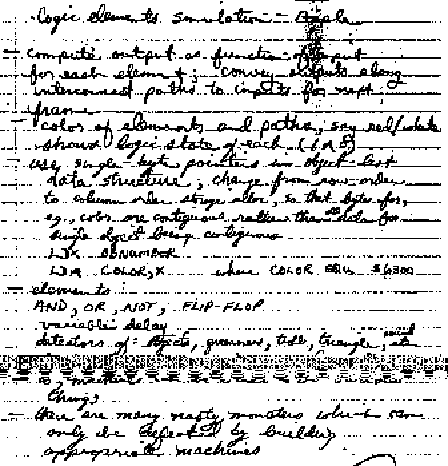 logic elements simulation - Apple
- compute output as function of input
for each element; convey outputs along
interconnect paths to inputs for next
frame
- color of elements and paths, say red/white
shows logic state of each (1 / 0)
- use single-byte pointers in object list
data structure; change from row order
to column order storage alloc, so that bytes for,
eg, color are contiguous rather than data for
single object being contiguous
LDX OBNUMBER
LDA COLOR,X where COLOR EQU $6300
- elements
AND, OR, NOT, FLIP-FLOP
variable delay
detectors of: objects, , , triangle, sound, etc
things
- there are many nasty monsters which can
only be defeated by building
appropriate machines